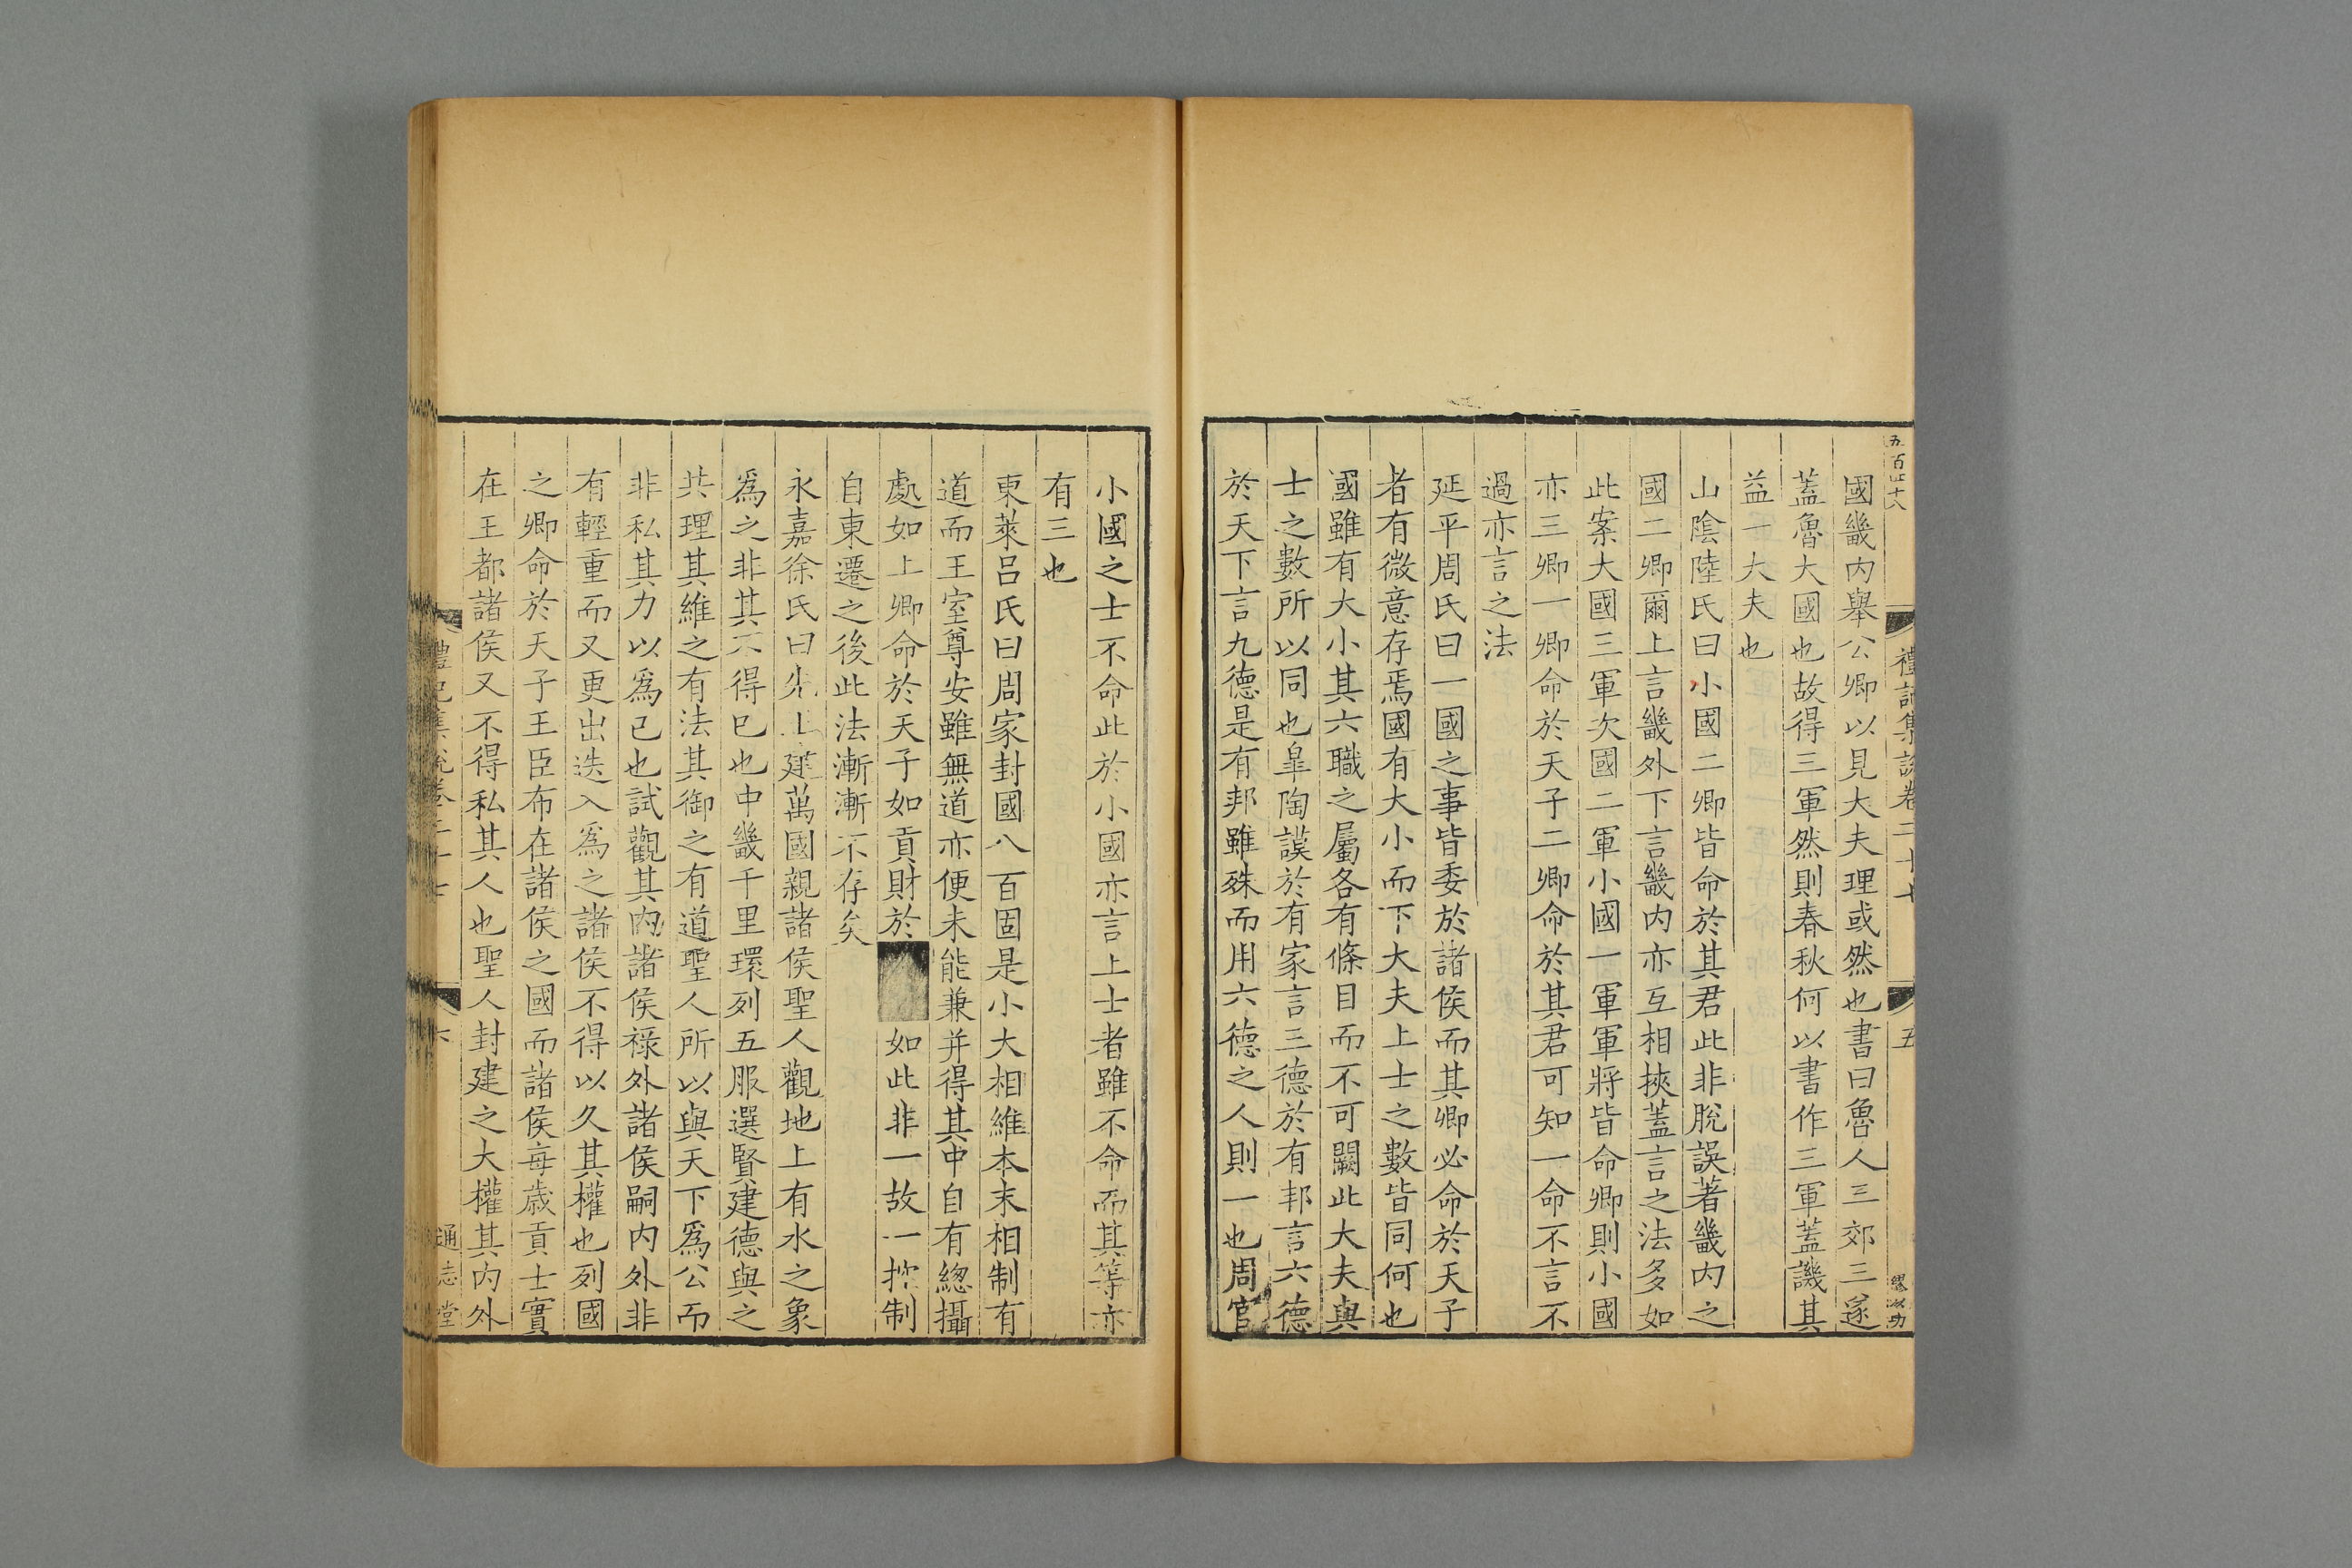 五百四十八
禮記集說卷二十七
五
國畿內舉公卿以見大夫理或然也書曰魯人三郊三遂
蓋魯大國也故得三軍然則春秋何以書作三軍蓋譏其
益一大夫也
山陰陸氏曰小國二卿皆命於其君此非脫誤著畿內之
國二卿爾上言畿外下言畿內亦互相挾蓋言之法多如
此案大國三軍次國二軍小國一軍軍將皆命卿則小國
亦三卿一卿命於天子二卿命於其君可知一命不言不
過亦言之法
延平周氏曰一國之事皆委於諸侯而其卿必命於天子
者有微意存焉國有大小而下大夫上士之數皆同何也
國雖有大小其六職之屬各有條目而不可闕此大夫與
士之數所以同也皐陶謨於有家言三德於有邦言六德
於天下言九德是有邦雖殊而用六德之人則一也周官
小國之士不命此於小國亦言上士者雖不命而其等亦
有三也
東萊呂氏曰周家封國八百固是小大相維本末相制有
道而王室尊安雖無道亦便未能兼并得其中自有緫攝
處如上卿命於天子如貢財於如此非一故一控制
自東遷之後此法漸漸不存矣
永嘉徐氏曰先王建萬國親諸侯聖人觀地上有水之象
爲之非其不得已也中畿千里環列五服選賢建德與之
共理其維之有法其御之有道聖人所以與天下爲公而
非私其力以爲已也試觀其內諸侯祿外諸侯嗣內外非
有輕重而又更出迭入爲之諸侯不得以久其權也列國
之卿命於天子王臣布在諸侯之國而諸侯每歲貢士實
在王都諸侯又不得私其人也聖人封建之大權其內外
禮記集說卷二十七
六
通志堂